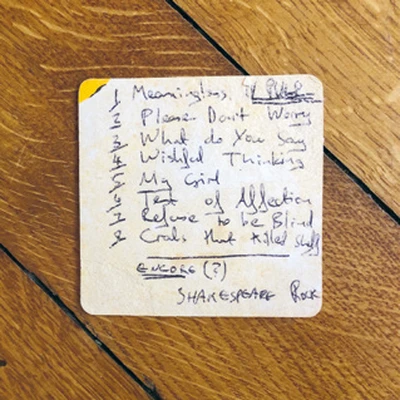 1 Meaningless
2 Please Don't Worry
3 What do You Say
4 Wishful Thinking
5 My Girl
6 Test of Affection
7 Refuse to be Blind
8 that Killed
ENCORE (?)
SHAKESPEARE ROCK